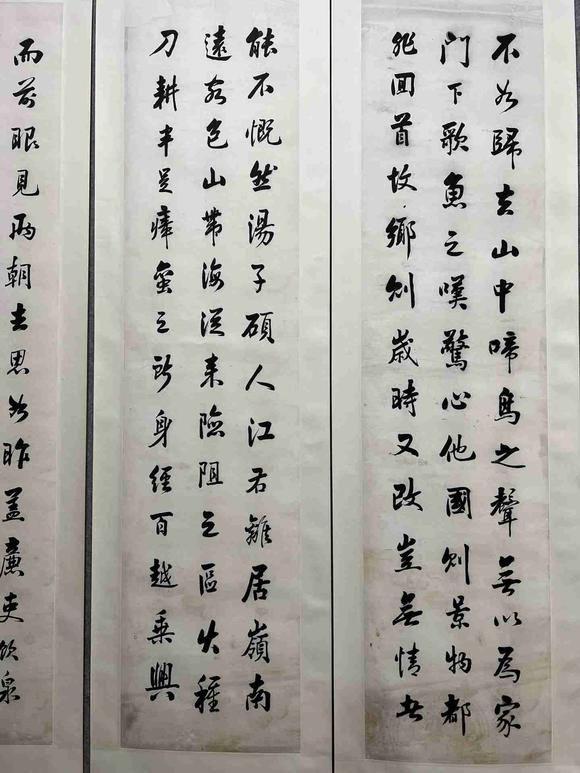 不如歸去山中啼鳥之聲無以為家
門下歌魚之嘆驚心他國則景物都
非回首故鄉則歲時又改豈無情者
能不慨然湯子碩人江右離居嶺南
遠客包山帶海從來險阻之區火種
刀耕半是瘴蠻之所身經百越乘興
而前眼見兩朝去思如昨蓋廉吏飲泉